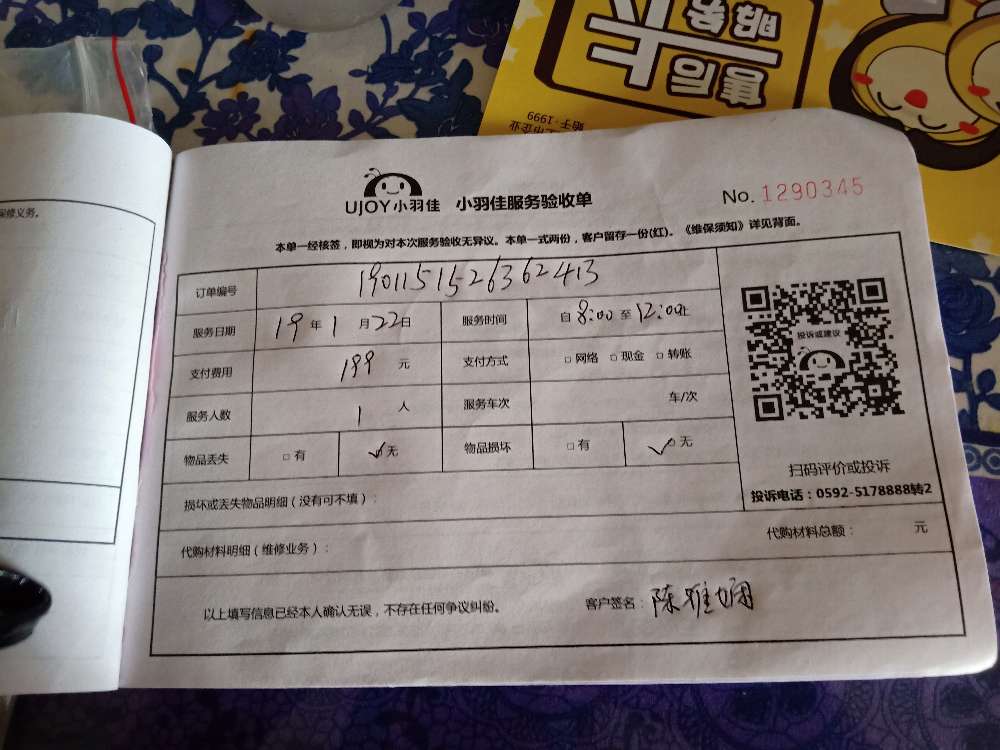 保修义务。
真可
上市企业
始于·1999
UJOY小羽佳 小羽佳服务验收单 No. 1290345
本单一经核签，即视为对本次服务验收无异议。本单一式两份，客户留存一份(红)。《维保须知》详见背面。
订单编号 1901151526362413
服务日期 19年1月22日 服务时间 自8:00至12:00止
支付费用 199元 支付方式 □网络 □现金 □转账
服务人数 1人 服务车次 车/次
物品丢失 □有 ✓无 物品损坏 □有 ✓□无
投诉或建议
扫码评价或投诉
投诉电话：0592-5178888转2
损坏或丢失物品明细（没有可不填）：
代购材料明细（维修业务）： 代购材料总额： 元
以上填写信息已经本人确认无误，不存在任何争议纠纷。 客户签名：陈雅娴